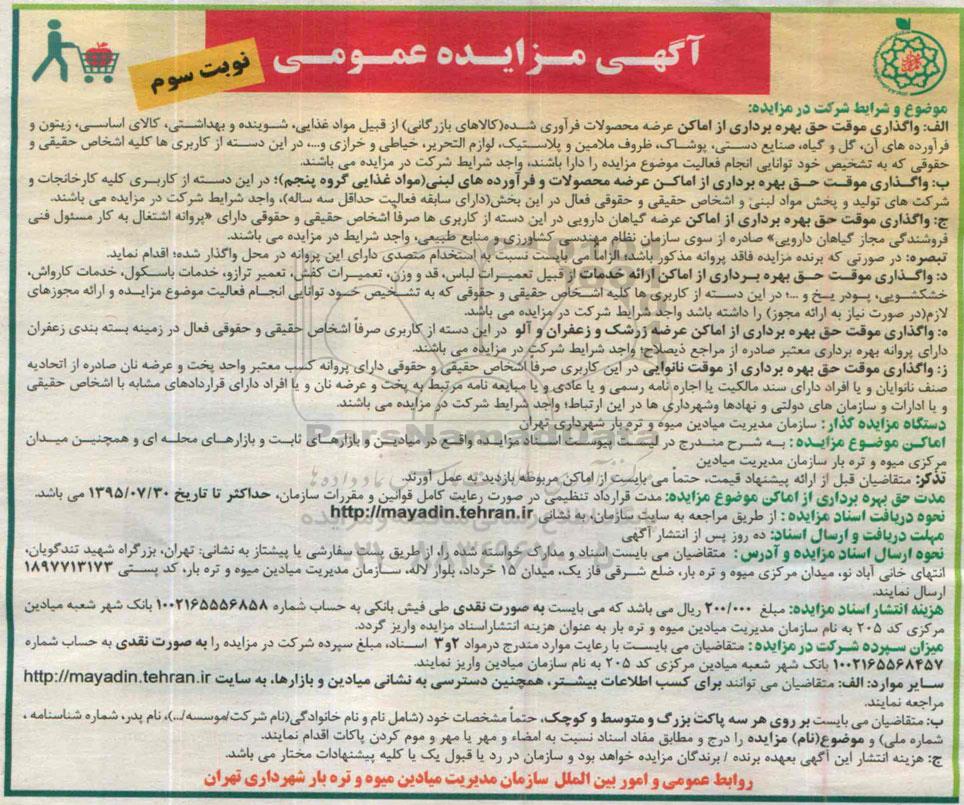 آگهی مزایده عمومی
نوبت سوم
موضوع و شرایط شرکت در مزایده:
الف: واگذاری موقت حق بهره برداری از اماکن عرضه محصولات فرآوری شده(کالاهای بازرگانی) از قبیل مواد غذایی، شوینده و بهداشتی، کالای اساسی، زیتون و
فرآورده های آن، گل و گیاه، صنایع دستی، پوشاک، ظروف ملامین و پلاستیک، لوازم التحریر، خیاطی و خرازی و...، در این دسته از کاربری ها کلیه اشخاص حقیقی و
حقوقی که به تشخیص خود توانایی انجام فعالیت موضوع مزایده را دارا باشند، واجد شرایط شرکت در مزایده می باشند.
ب: واگذاری موقت حق بهره برداری از اماکن عرضه محصولات و فرآورده های لبنی(مواد غذایی گروه پنجم)؛ در این دسته از کاربری کلیه کارخانجات و
شرکت های تولید و پخش مواد لبنی و اشخاص حقیقی و حقوقی فعال در این بخش(دارای سابقه فعالیت حداقل سه ساله)، واجد شرایط شرکت در مزایده می باشند.
ج: واگذاری موقت حق بهره برداری از اماکن عرضه گیاهان دارویی در این دسته از کاربری ها صرفاً اشخاص حقیقی و حقوقی دارای «پروانه اشتغال به کار مسئول فنی
فروشندگی مجاز گیاهان دارویی» صادره از سوی سازمان نظام مهندسی کشاورزی و منابع طبیعی، واجد شرایط در مزایده می باشند.
تبصره: در صورتی که برنده مزایده فاقد پروانه مذکور باشد، الزاماً می بایست نسبت به استخدام متصدی دارای این پروانه در محل واگذار شده؛ اقدام نماید.
د: واگذاری موقت حق بهره برداری از اماکن ارائه خدمات از قبیل تعمیرات لباس، قد و وزن، تعمیرات کفش، تعمیر ترازو، خدمات باسکول، خدمات کارواش،
خشکشویی، پودر یخ و ...؛ در این دسته از کاربری ها کلیه اشخاص حقیقی و حقوقی که به تشخیص خود توانایی انجام فعالیت موضوع مزایده و ارائه مجوزهای
لازم(در صورت نیاز به ارائه مجوز) را داشته باشد واجد شرایط شرکت در مزایده می باشد.
ه: واگذاری موقت حق بهره برداری از اماکن عرضه زرشک و زعفران و آلو در این دسته از کاربری صرفاً اشخاص حقیقی و حقوقی فعال در زمینه بسته بندی زعفران
دارای پروانه بهره برداری معتبر صادره از مراجع ذیصلاح؛ واجد شرایط شرکت در مزایده می باشند.
ز: واگذاری موقت حق بهره برداری از موقت نانوایی در این کاربری صرفاً اشخاص حقیقی و حقوقی دارای پروانه کسب معتبر واحد پخت و عرضه نان صادره از اتحادیه
صنف نانوایان و یا افراد دارای سند مالکیت یا اجاره نامه رسمی و یا عادی و یا مبایعه نامه مرتبط به پخت و عرضه نان و یا افراد دارای قراردادهای مشابه با اشخاص حقیقی
و یا ادارات و سازمان های دولتی و نهادها وشهرداری ها در این ارتباط؛ واجد شرایط شرکت در مزایده می باشند.
دستگاه مزایده گذار : سازمان مدیریت میادین میوه و تره بار شهرداری تهران
اماکن موضوع مزایده : به شرح مندرج در لیست پیوست اسناد مزایده واقع در میادین و بازارهای ثابت و بازارهای محله ای و همچنین میدان
مرکزی میوه و تره بار سازمان مدیریت میادین
تذکر: متقاضیان قبل از ارائه پیشنهاد قیمت، حتماً می بایست از اماکن مربوطه بازدید به عمل آورند.
مدت حق بهره برداری از اماکن موضوع مزایده: مدت قرارداد تنظیمی در صورت رعایت کامل قوانین و مقررات سازمان، حداکثر تا تاریخ ۱۳۹۵/۰۷/۳۰ می باشد.
نحوه دریافت اسناد مزایده : از طریق مراجعه به سایت سازمان، به نشانی http://mayadin.tehran.ir
مهلت دریافت و ارسال اسناد: ده روز پس از انتشار آگهی
نحوه ارسال اسناد مزایده و آدرس : متقاضیان می بایست اسناد و مدارک خواسته شده را، از طریق پست سفارشی یا پیشتاز به نشانی: تهران، بزرگراه شهید تندگویان،
انتهای خانی آباد نو، میدان مرکزی میوه و تره بار، ضلع شرقی فاز یک، میدان ۱۵ خرداد، بلوار لاله، سازمان مدیریت میادین میوه و تره بار، کد پستی ۱۸۹۷۷۱۳۱۷۳
ارسال نمایند.
هزینه انتشار اسناد مزایده: مبلغ ۲۰۰/۰۰۰ ریال می باشد که می بایست به صورت نقدی طی فیش بانکی به حساب شماره ۱۰۰۲۱۶۵۵۵۶۸۵۸ بانک شهر شعبه میادین
مرکزی کد ۲۰۵ به نام سازمان مدیریت میادین میوه و تره بار به عنوان هزینه انتشاراسناد مزایده واریز گردد.
میزان سپرده شرکت در مزایده : متقاضیان می بایست با رعایت موارد مندرج درمواد ۲و۳ اسناد، مبلغ سپرده شرکت در مزایده را به صورت نقدی به حساب شماره
۱۰۰۲۱۶۵۵۶۸۴۵۷ بانک شهر شعبه میادین مرکزی کد ۲۰۵ به نام سازمان میادین واریز نمایند.
سایر موارد: الف: متقاضیان می توانند برای کسب اطلاعات بیشتر، همچنین دسترسی به نشانی میادین و بازارها، به سایت http://mayadin.tehran.ir
مراجعه نمایند.
ب: متقاضیان می بایست بر روی هر سه پاکت بزرگ و متوسط و کوچک، حتماً مشخصات خود (شامل نام و نام خانوادگی(نام شرکت/موسسه/...)، نام پدر، شماره شناسنامه ،
شماره ملی) و موضوع(نام) مزایده را درج و مطابق مفاد اسناد نسبت به امضاء و مهر یا مهر و موم کردن پاکات اقدام نمایند.
ج: هزینه انتشار این آگهی بعهده برنده / برندگان مزایده خواهد بود و سازمان در رد یا قبول یک یا کلیه پیشنهادات مختار می باشد.
روابط عمومی و امور بین الملل سازمان مدیریت میادین میوه و تره بار شهرداری تهران
ParsNamadData